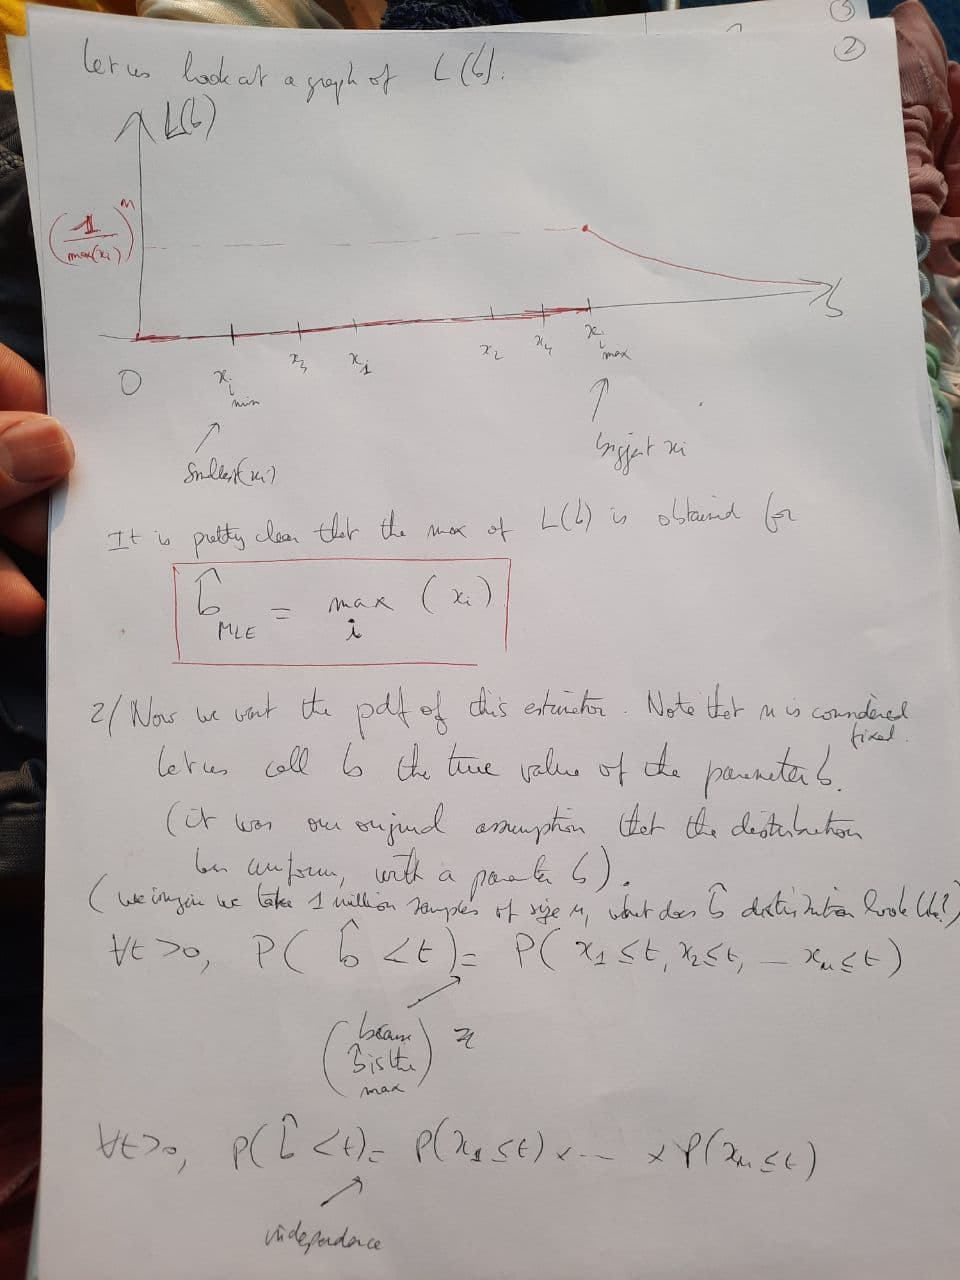 3
2
Let us look at a graph of L(b).
L(b)
(1/max(xi))^n
b
0 xi min x3 x1 x2 x4 xi max
smallest(xi) biggest xi
It is pretty clear that the max of L(b) is obtained for
b̂ MLE = max i (xi)
2/ Now we want the pdf of this estimator. Note that n is considered
fixed.
Let us call b the true value of the parameter b.
(it was our original assumption that the distribution
be uniform, with a parameter b).
(we imagine we take 1 million samples of size n, what does b̂ distribution look like?)
∀t>0, P( b̂ <t)= P( x1 ≤t, x2≤t, — xn≤t)
(because b̂ is the max)
∀t>0, P(b̂ <t)= P(x1≤t) x -- x P(xn≤t)
independence